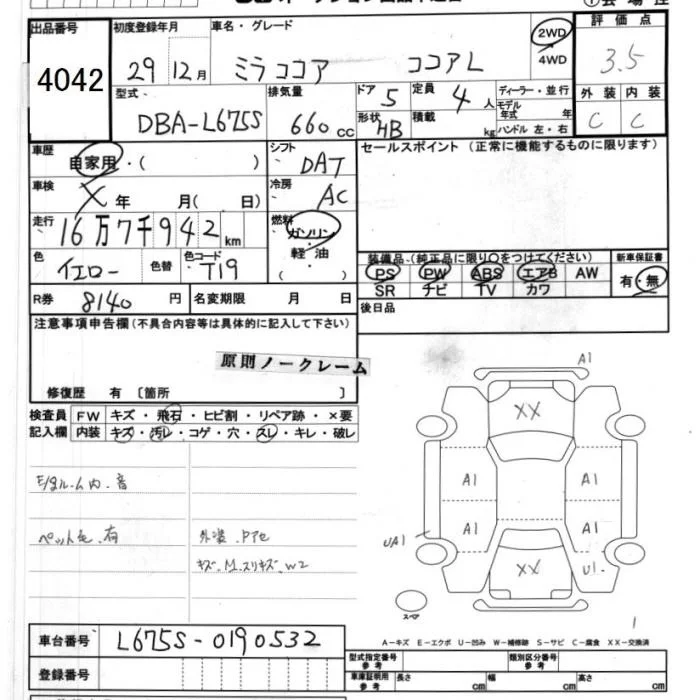 出品番号 初度登録年月 車名・グレード 2WD 評価点
4042 29 12月 ミラココア ココアL 4WD 3.5
型式 排気量 ドア 5 定員 4人 ディーラー・並行 外装 内装
DBA-L675S 660 CC 形状 HB 積載 kg モデル年式 年 C C
ハンドル 左・右
車歴 自家用・( ) シフト DAT セールスポイント(正常に機能するものに限ります)
車検 X 年 月( 日) 冷房 AC
走行 16万7千942km 燃料 ガソリン
軽油
( )
色 イエロー 色替 色コード T19
装備品(純正品に限り〇をつけてください) 新車保証書
PS PW ABS エアB AW 有・無
SR ナビ TV カワ
R券 8140円 名変期限 月 日 後日品
注意事項申告欄(不具合内容等は具体的に記入して下さい)
原則ノークレーム
修復歴 有 〔箇所 〕
検査員 FW キズ・飛石・ヒビ割・リペア跡・×要
記入欄 内装 キズ・汚レ・コゲ・穴・スレ・キレ・破レ
ペット毛 有
外装 Pアセ
キズ M スリキズ W2
A1
XX
A1 A1
A1 A1
UA1
XX U1
スペア
1
A-キズ E-エクボ U-凹み W-補修跡 S-サビ C-腐食 XX-交換済
車台番号 L675S-0190532
登録番号
型式指定番号 参考 類別区分番号 参考
車庫証明用 参考 長さ cm 幅 cm 高さ cm